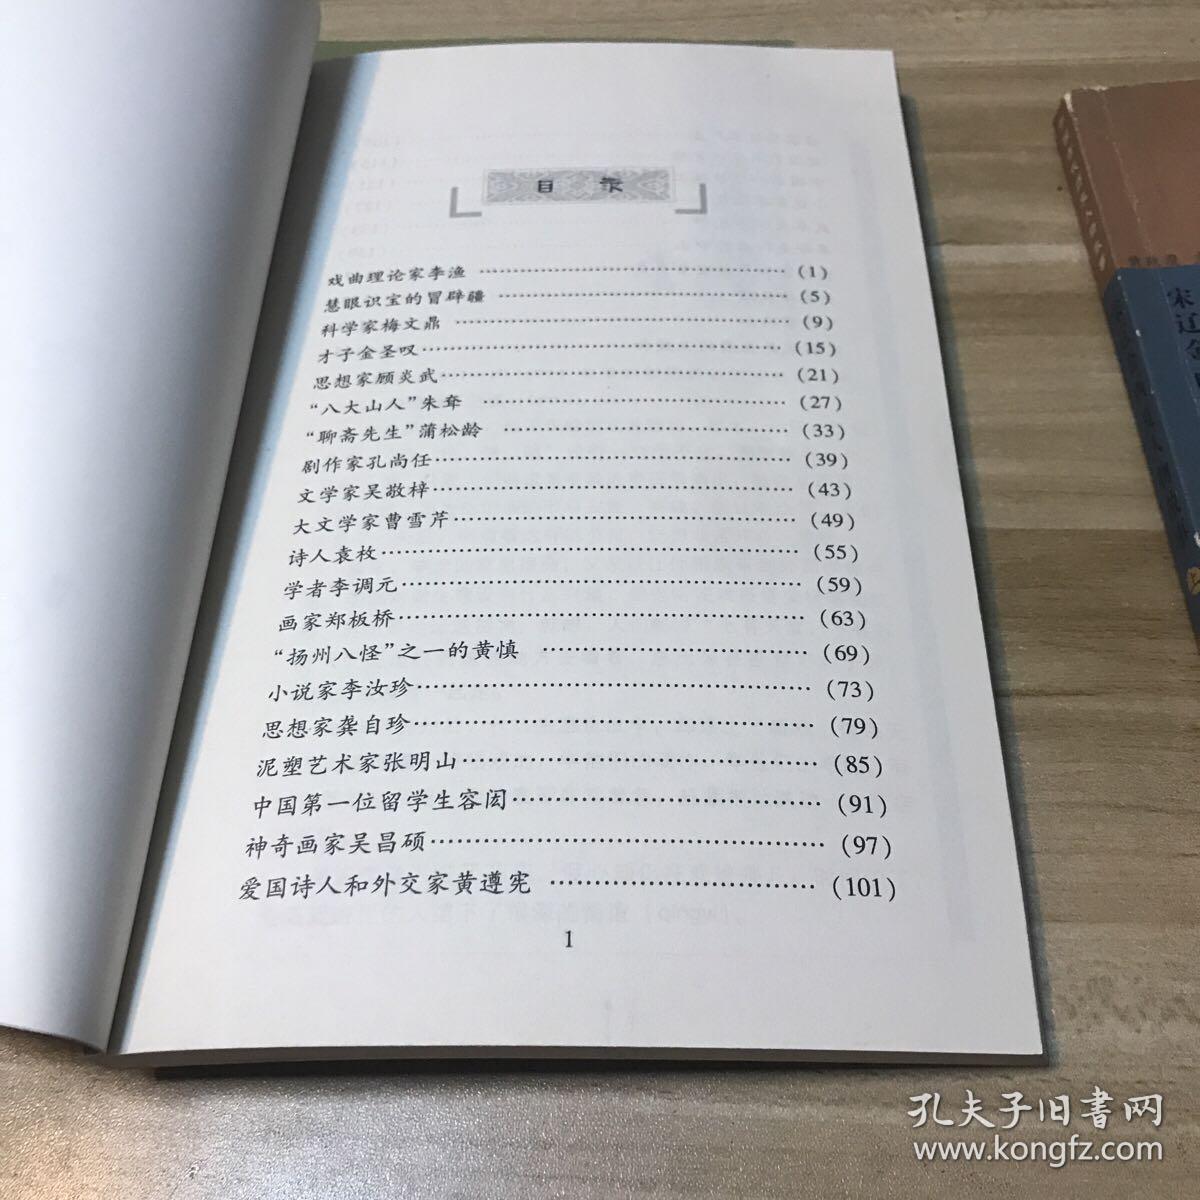 目 录
戏曲理论家李渔 ……………………………… (1)
慧眼识宝的冒辟疆 …………………………… (5)
科学家梅文鼎 ………………………………… (9)
才子金圣叹…………………………………… (15)
思想家顾炎武………………………………… (21)
“八大山人”朱耷 …………………………… (27)
“聊斋先生”蒲松龄 ………………………… (33)
剧作家孔尚任………………………………… (39)
文学家吴敬梓………………………………… (43)
大文学家曹雪芹……………………………… (49)
诗人袁枚……………………………………… (55)
学者李调元…………………………………… (59)
画家郑板桥…………………………………… (63)
“扬州八怪”之一的黄慎 …………………… (69)
小说家李汝珍………………………………… (73)
思想家龚自珍………………………………… (79)
泥塑艺术家张明山…………………………… (85)
中国第一位留学生容闳……………………… (91)
神奇画家吴昌硕……………………………… (97)
爱国诗人和外交家黄遵宪 ………………… (101)
1
宋辽金
孔夫子旧書网
www.kongfz.com